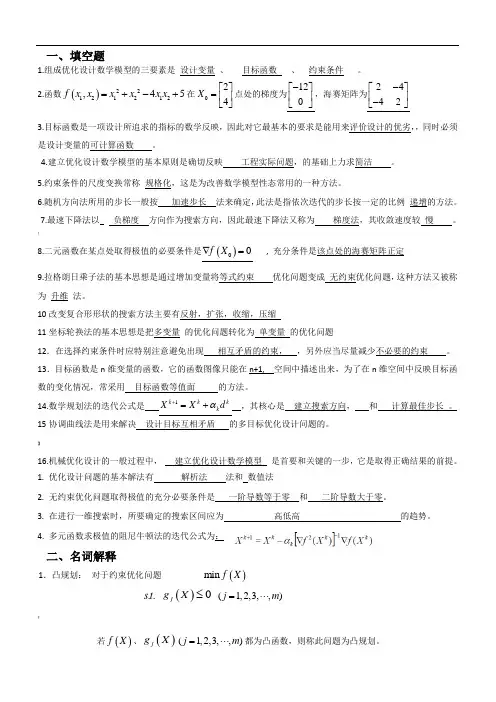 一、填空题
1.组成优化设计数学模型的三要素是 设计变量 、 目标函数 、 约束条件 。
2.函数 f(x₁,x₂)=x₁²+x₂²−4x₁x₂+5 在 X₀=[2 4] 点处的梯度为 [−12 0]，海赛矩阵为 [2 −4 −4 2]
3.目标函数是一项设计所追求的指标的数学反映，因此对它最基本的要求是能用来评价设计的优劣，，同时必须
是设计变量的可计算函数 。
4.建立优化设计数学模型的基本原则是确切反映 工程实际问题，的基础上力求简洁 。
5.约束条件的尺度变换常称 规格化，这是为改善数学模型性态常用的一种方法。
6.随机方向法所用的步长一般按 加速步长 法来确定，此法是指依次迭代的步长按一定的比例 递增的方法。
7.最速下降法以 负梯度 方向作为搜索方向，因此最速下降法又称为 梯度法，其收敛速度较 慢 。
8.二元函数在某点处取得极值的必要条件是∇f(X₀)=0 ，充分条件是该点处的海赛矩阵正定
9.拉格朗日乘子法的基本思想是通过增加变量将等式约束 优化问题变成 无约束优化问题，这种方法又被称
为 升维 法。
10 改变复合形形状的搜索方法主要有反射，扩张，收缩，压缩
11 坐标轮换法的基本思想是把多变量 的优化问题转化为 单变量 的优化问题
12．在选择约束条件时应特别注意避免出现 相互矛盾的约束， ，另外应当尽量减少不必要的约束 。
13．目标函数是 n 维变量的函数，它的函数图像只能在 n+1, 空间中描述出来，为了在 n 维空间中反映目标函
数的变化情况，常采用 目标函数等值面 的方法。
14.数学规划法的迭代公式是 Xᵏ⁺¹=Xᵏ+αₖdᵏ ，其核心是 建立搜索方向， 和 计算最佳步长 。
15 协调曲线法是用来解决 设计目标互相矛盾 的多目标优化设计问题的。
16.机械优化设计的一般过程中， 建立优化设计数学模型 是首要和关键的一步，它是取得正确结果的前提。
1. 优化设计问题的基本解法有 解析法 法和 数值法
2. 无约束优化问题取得极值的充分必要条件是 一阶导数等于零 和 二阶导数大于零。
3. 在进行一维搜索时，所要确定的搜索区间应为 高低高 的趋势。
4. 多元函数求极值的阻尼牛顿法的迭代公式为： Xᵏ⁺¹=Xᵏ−αₖ[∇f²(Xᵏ)]⁻¹∇f(Xᵏ)
二、名词解释
1．凸规划： 对于约束优化问题 min f(X)
s.t. gⱼ(X)≤0 (j=1,2,3,⋯,m)
若 f(X)、gⱼ(X) (j=1,2,3,⋯,m) 都为凸函数，则称此问题为凸规划。